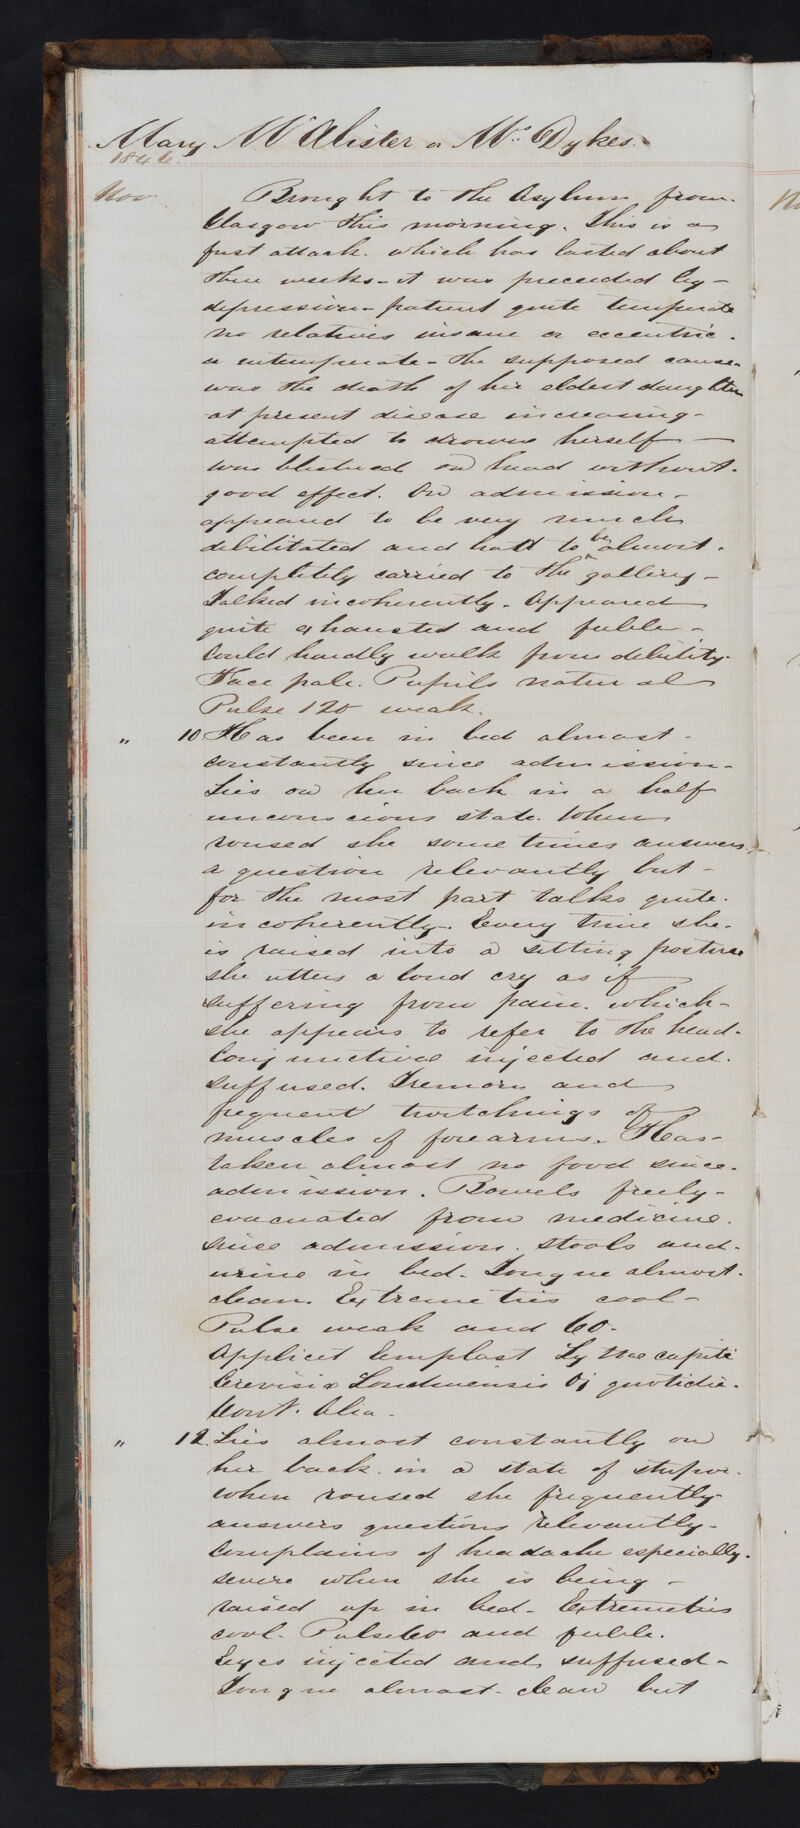 Mary McAlister or Mrs Dykes.
1846.
Nov Brought to the Asylum from
Glasgow this morning. This is a
first attack. which has lasted about
three weeks - it was preceeded by -
depression - patient quite temperate
no relatives insane or eccentric.
or intemperate - the supposed cause
was the death of her eldest daughter
at present disease increasing -
attempted to drown herself -
was blistered on head without.
good effect. On admission -
appeared to be very much
debilitated and had to be almost.
completely carried to the gallery -
Talked incoherently. Appeared
quite exhausted and feeble -
Could hardly walk from debility.
Face pale. Pupils natural
Pulse 120 weak.
" 10 Has been in bed almost -
constantly since admission -
Lies on her back in a half
unconscious state. When
roused she sometimes answers
a question relevantly but -
for the most part talks quite.
incoherently. Every time she.
is raised into a sitting posture
she utters a loud cry as if
suffering from pain. which -
she appears to refer to the head -
Conjunctivae injected and.
suffused. Tremors and
frequent twitchings of
muscles of forearms. Has -
taken almost no food since.
admission. Bowels freely -
evacuated from medicine.
since admission. stools and -
urine in bed. Tongue almost.
clean. Extremeties cool -
Pulse weak and 60.
Applicet Emplast Lyttae capiti
Cerevisiæ Londinensis Oj quotidie.
Cont. Alia.
" 12. Lies almost constantly on
her back in a state of stupor.
when roused she frequently
answers questions relevantly.
Complains of headache especially.
severe when she is being -
raised up in bed. Extremeties
cool. Pulse 60 and feeble.
Eyes injected and suffused -
Tongue almost clean but